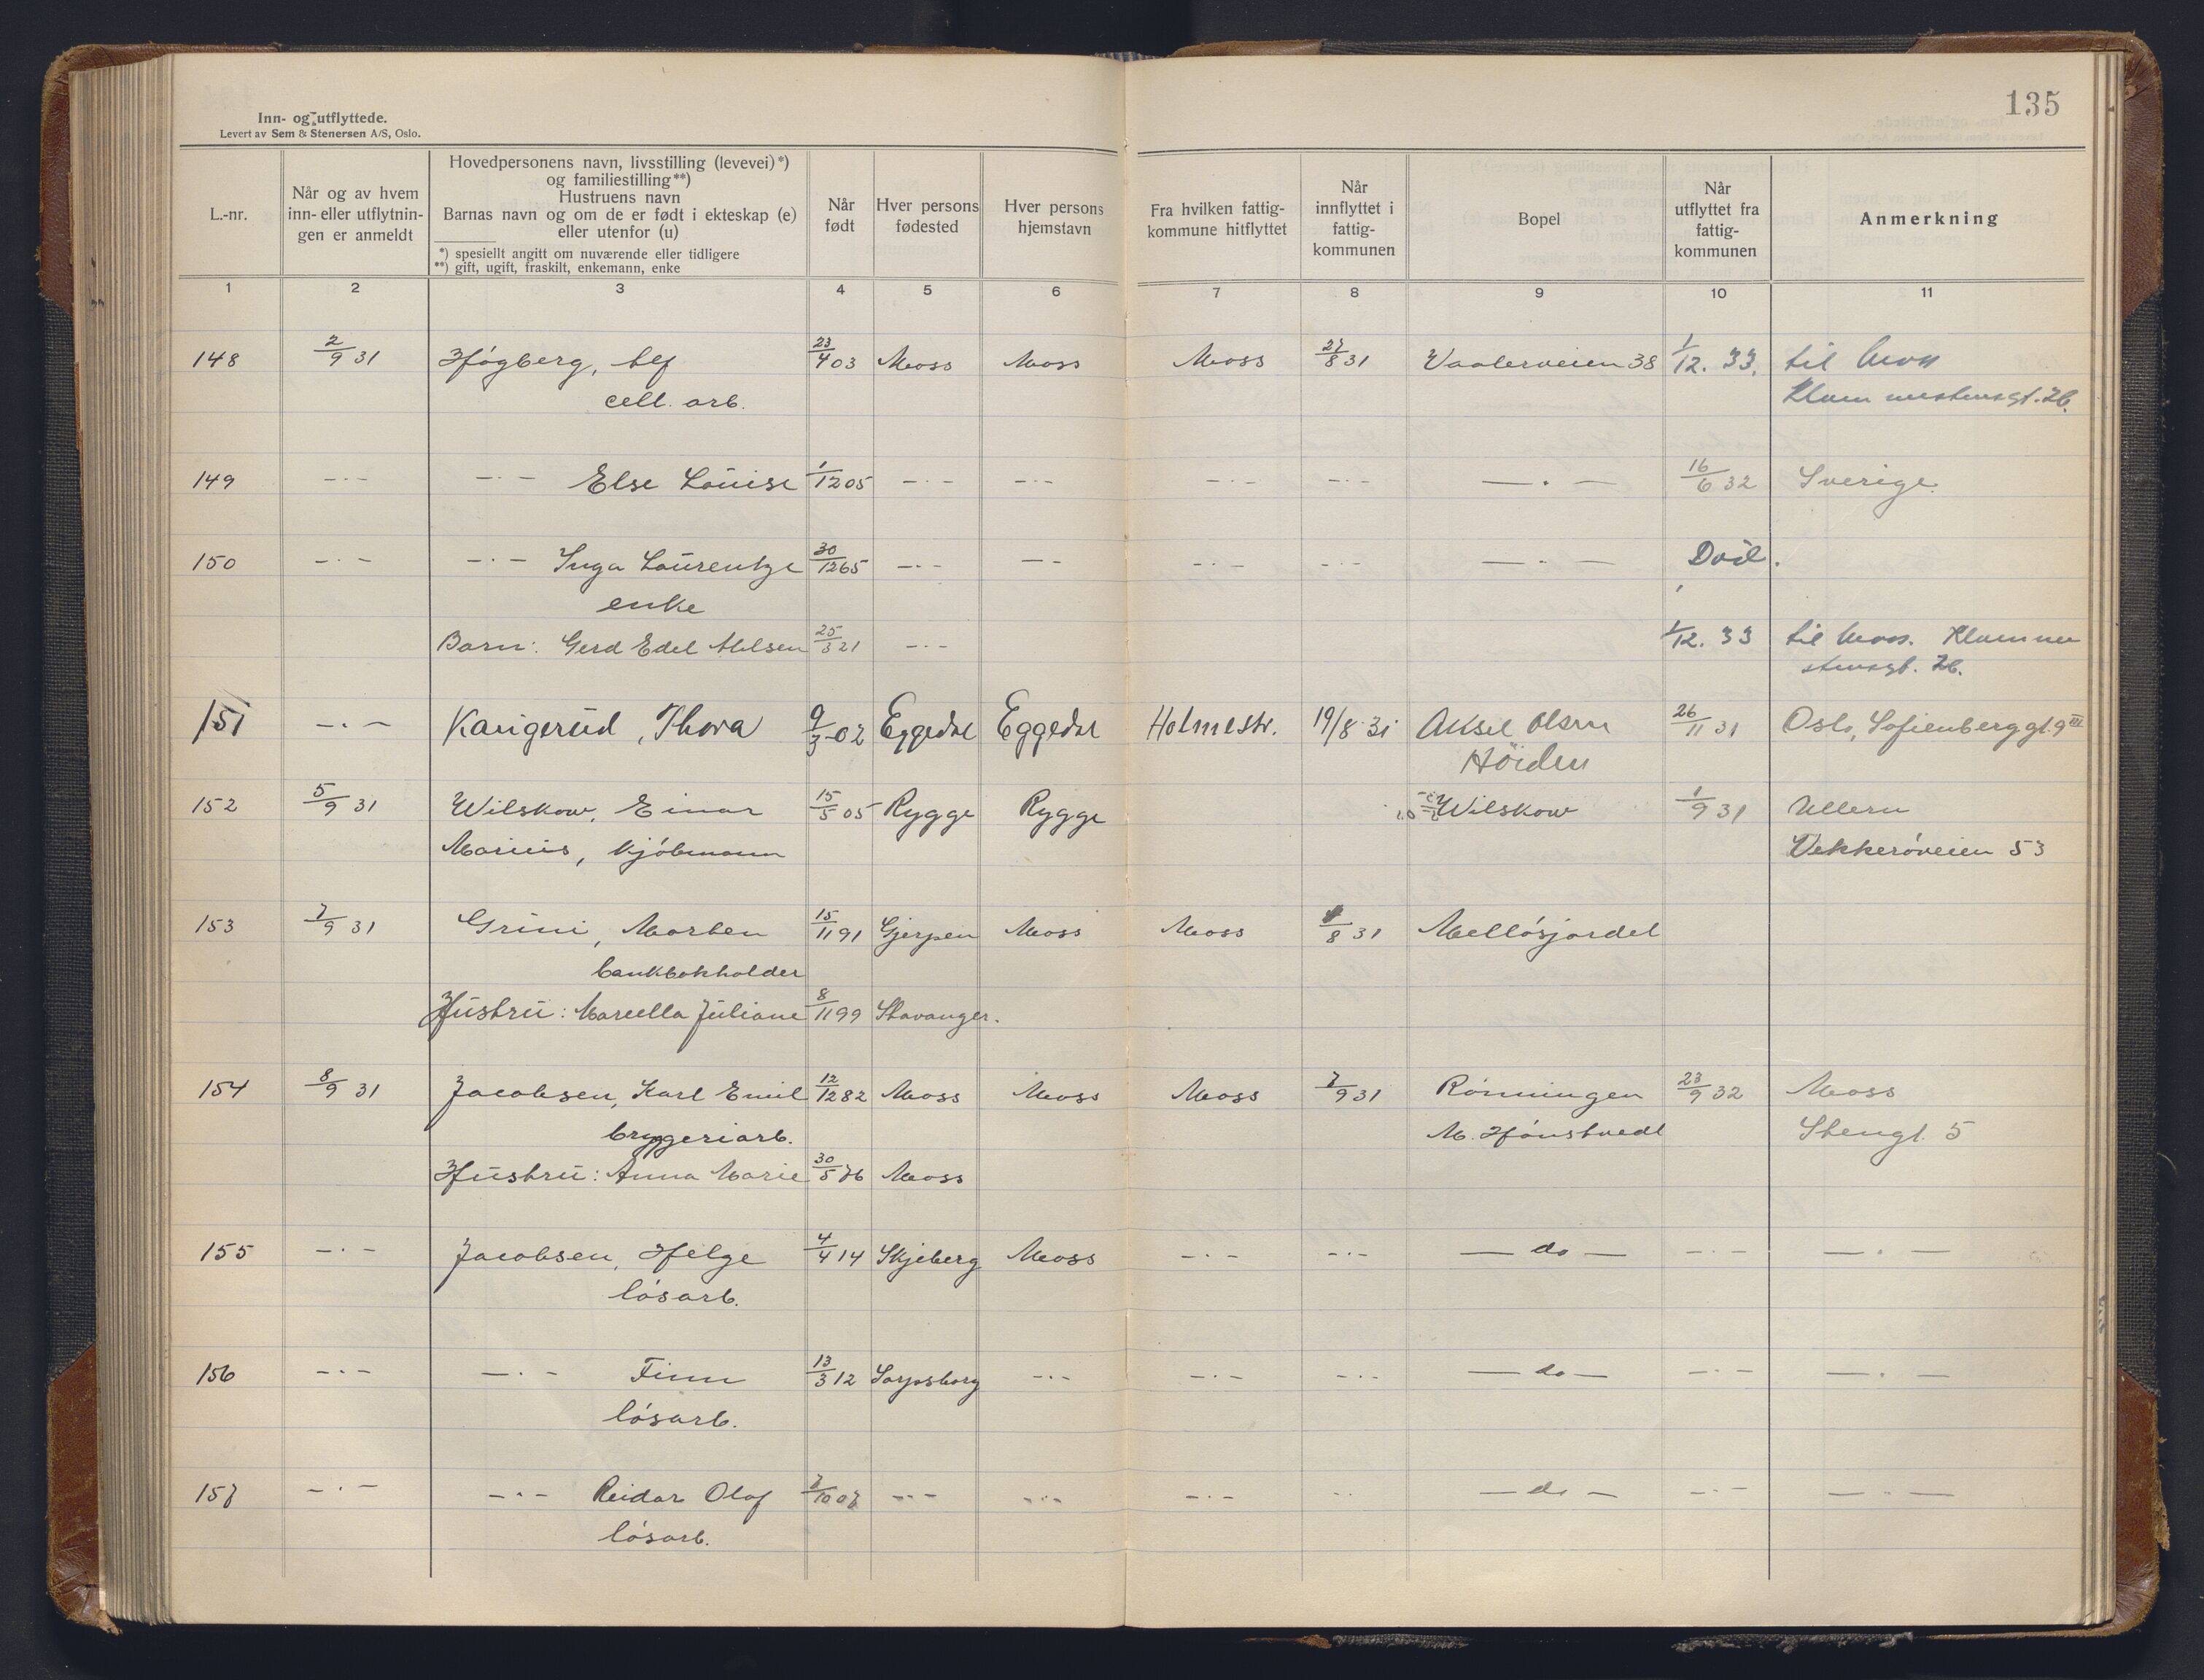 135
Inn- og utflyttede.
Levert av Sem & Stenersen A/S, Oslo.
L.-nr.
Når og av hvem
inn- eller utflytnin-
gen er anmeldt
Hovedpersonens navn, livsstilling (levevei)*)
og familiestilling**)
Hustruens navn
Barnas navn og om de er født i ekteskap (e)
eller utenfor (u)
*) spesiellt angitt om nuværende eller tidligere
**) gift, ugift, fraskilt, enkemann, enke
Når
født
Hver persons
fødested
Hver persons
hjemstavn
Fra hvilken fattig-
kommune hitflyttet
Når
innflyttet i
fattig-
kommunen
Bopel
Når
utflyttet fra
fattig-
kommunen
Anmerkning
1 2 3 4 5 6 7 8 9 10 11
148 2/9 31 Högberg, Alf 23/4 03 Moss Moss Moss 27/8 31 Vaalerveien 38 1/12. 33. til Moss
cell. arb. 26.
149 -·- -·- Else Louise 1/12 05 -·- -·- -·- -·- -·- 16/6 32 Sverige.
150 -·- -·- Inga Laurentze 30/12 65 -·- -- -·- -·- -·- Död.
enke
Barn: Gerd Edel Nilsen 25/3 21 -·- 1/12. 33 til Moss.
26.
151 -·- Kaugerud, Thora 9/3-02 Eggedal Eggedal Holmestr. 19/8 31 Aksel Olsen 26/11 31 Oslo, Sofienberggt. 9 III
Höiden
152 5/9 31 Wilskow, Einar 15/5 05 Rygge Rygge Wilskow 1/9 31 Ullern
Marius, kjöbmann Vekkeröveien 53
153 7/9 31 Grini, Morten 15/11 91 Gjerpen Moss Moss /8 31 Mellösjordet
bankbokholder
Hustru: Marcella Juliane 8/11 99 Stavanger.
154 8/9 31 Jacobsen, Karl Emil 12/12 82 Moss Moss Moss 7/9 31 Rönningen 23/9 32 Moss
bryggeriarb. M. Hönstvedt Stengt. 5
Hustru: Anna Marie 30/5 76 Moss
155 -·- Jacobsen, Helge 4/4 14 Skjeberg Moss -·- -·- - do - -·- -·-
lösarb.
156 -·- -·- Finn 13/3 12 Sarpsborg -·- -·- -·- - do - -·- -·-
lösarb.
157 -·- -·- Reidar Olaf 7/10 07 -·- -·- -·- -·- - do - -·- -·-
lösarb.